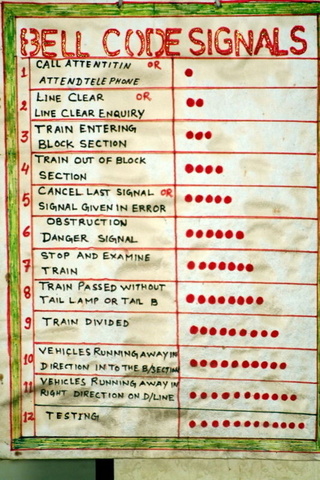 BELL CODE SIGNALS
1 CALL ATTENTITIN OR
ATTENDTELEPHONE
2 LINE CLEAR OR
LINE CLEAR ENQUIRY
3 TRAIN ENTERING
BLOCK SECTION
4 TRAIN OUT OF BLOCK
SECTION
5 CANCEL LAST SIGNAL OR
SIGNAL GIVEN IN ERROR
6 OBSTRUCTION
DANGER SIGNAL
7 STOP AND EXAMINE
TRAIN
8 TRAIN PASSED WITHOUT
TAIL LAMP OR TAIL B
9 TRAIN DIVIDED
10 VEHICLES RUNNING AWAY IN
DIRECTION IN TO THE B/SECTION
11 VEHICLES RUNNING AWAY IN
RIGHT DIRECTION ON D/LINE
12 TESTING